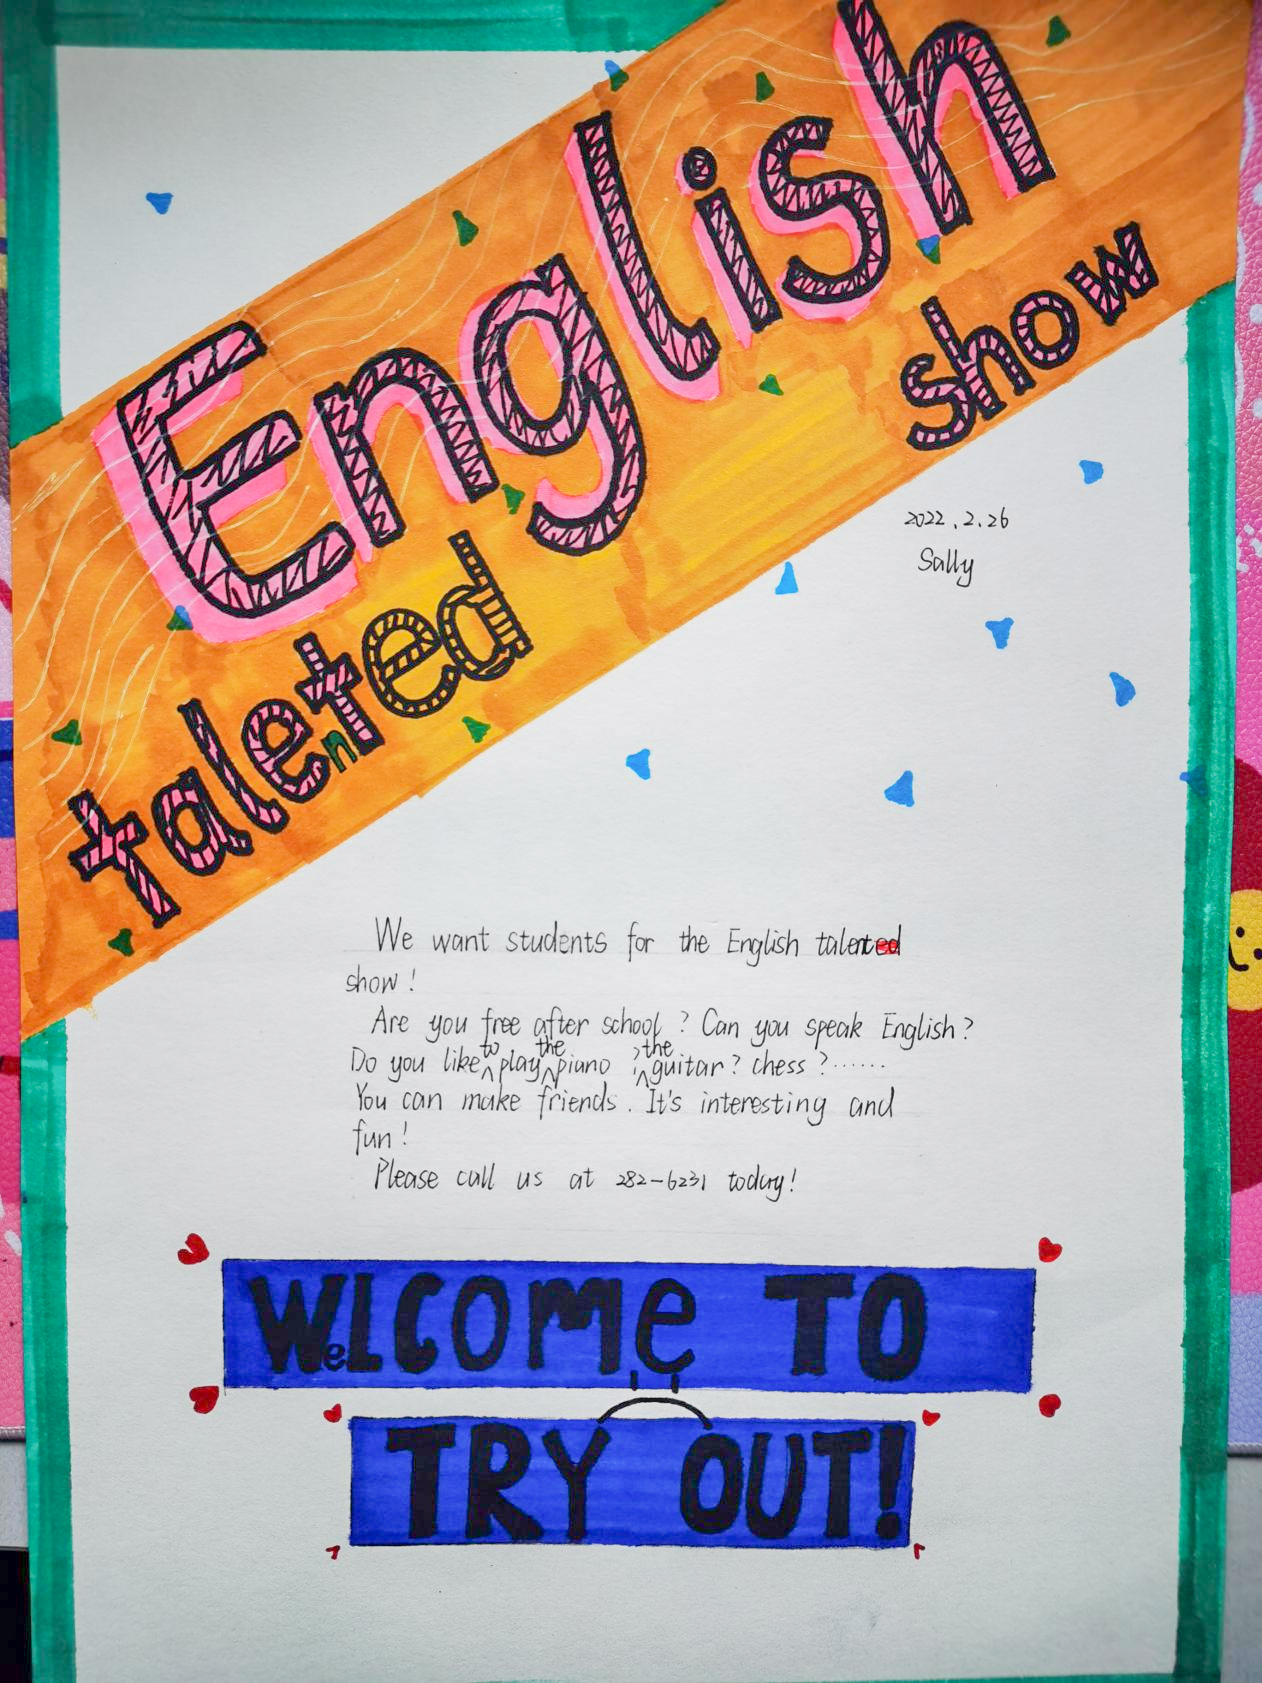 English
talented
show
2022.2.26
Sally
We want students for the English talented
show!
Are you free after school? Can you speak English?
Do you like to play the piano? the guitar? chess?......
You can make friends. It's interesting and
fun!
Please call us at 282-6231 today!
WeLCOMe TO
TRY OUT!